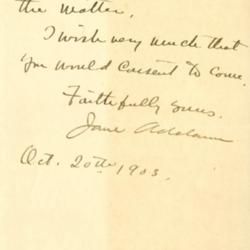 the matter.
I wish very much that
you would consent to come.
Faithfully yours.
Jane Addams
Oct. 20th 1903.